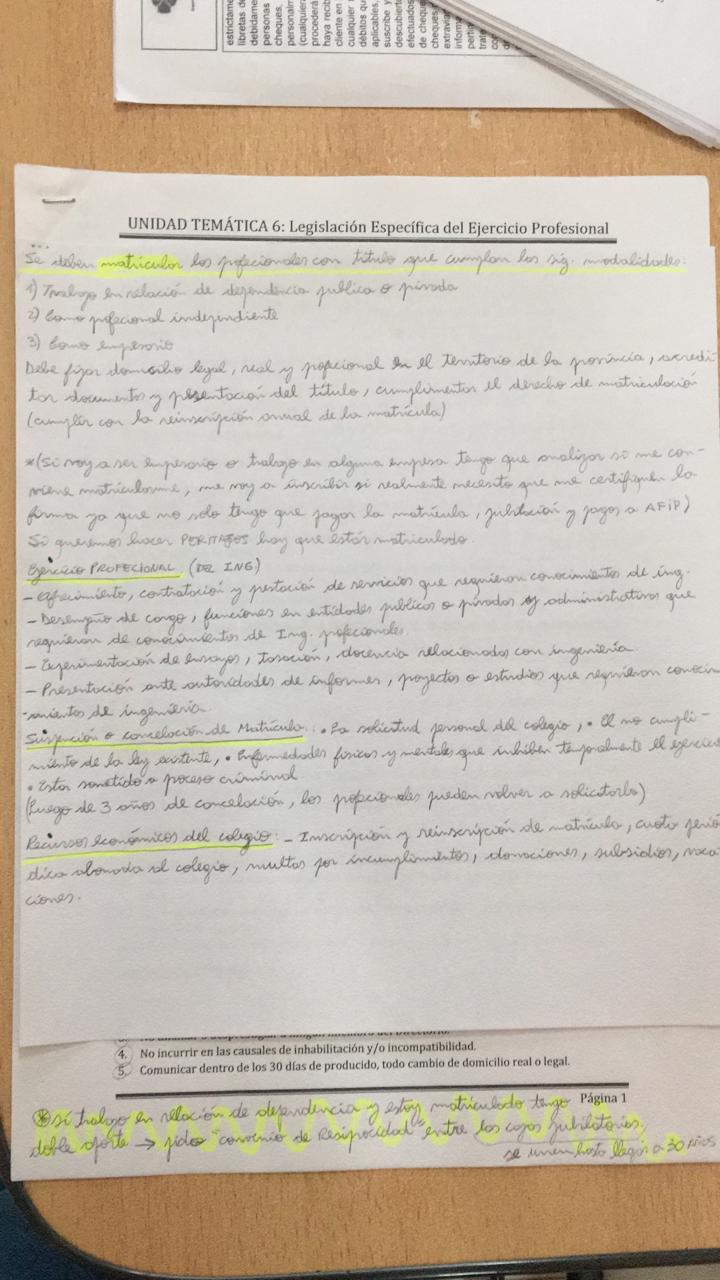 estrictame
libretas de
debidame
personas
cheques,
personalm
(cualquier
procederá
haya recib
cliente en
cualquier
débitos qu
aplicables,
suscribe y
descubiert
efectuados
de cheque
cheques
extrav
informa
pertin
trate
UNIDAD TEMÁTICA 6: Legislación Específica del Ejercicio Profesional
...
Se deben matricular los profecionales con título que cumplan las sig. modalidades:
1) Trabajo en relación de dependencia publica o privada
2) Como profecional independiente
3) Como empresario
Debe fijar domicilio legal, real y profecional en el territorio de la provincia, acredi-
tar documentos y presentación del título, cumplimentar el derecho de matriculación
(cumplir con la reinscripción anual de la matrícula)
*(Si voy a ser empresario o trabajo en alguna empresa tengo que analizar si me con-
viene matricularme, me voy a inscribir si realmente necesito que me certifiquen la
firma ya que no solo tengo que pagar la matrícula, jubilación y pagos a AFIP)
Si queremos hacer PERITAJES hay que estár matriculado.
Ejercicio PROFECIONAL (DEL ING)
- Ofrecimiento, contratación y prestación de servicios que requieren conocimientos de ing.
- Desempeño de cargo, funciones en entidades publicas o privadas y administrativas que
requieran de conocimientos de Ing. profecionales.
- Experimentación de ensayos, tasación, docencia relacionados con ingeniería.
- Presentación ante autoridades de informes, proyectos o estudios que requieran conoci-
-mientos de ingeniería.
Suspención o cancelación de Matrícula: • La solicitud personal del colegio, • El no cumpli-
miento de la ley existente, • Enfermedades físicas y mentales que inhiben temporalmente el ejercicio
• Estar sometido a proceso criminal
(Luego de 3 años de cancelación, los profecionales pueden volver a solicitarla)
Recursos económicos del colegio: - Inscripción y reinscripción de matrícula, cuota perió-
dica abonada al colegio, multas por incumplimientos, donaciones, subsidios, vaca-
ciones.
4. No incurrir en las causales de inhabilitación y/o incompatibilidad.
5. Comunicar dentro de los 30 días de producido, todo cambio de domicilio real o legal.
Página 1
*si trabajo en relación de dependencia y estoy matriculado tengo
doble aporte → pido "convenio de Resiprocidad" entre las cajas jubilatorias.
se unen hasta llegar a 30 AÑOS